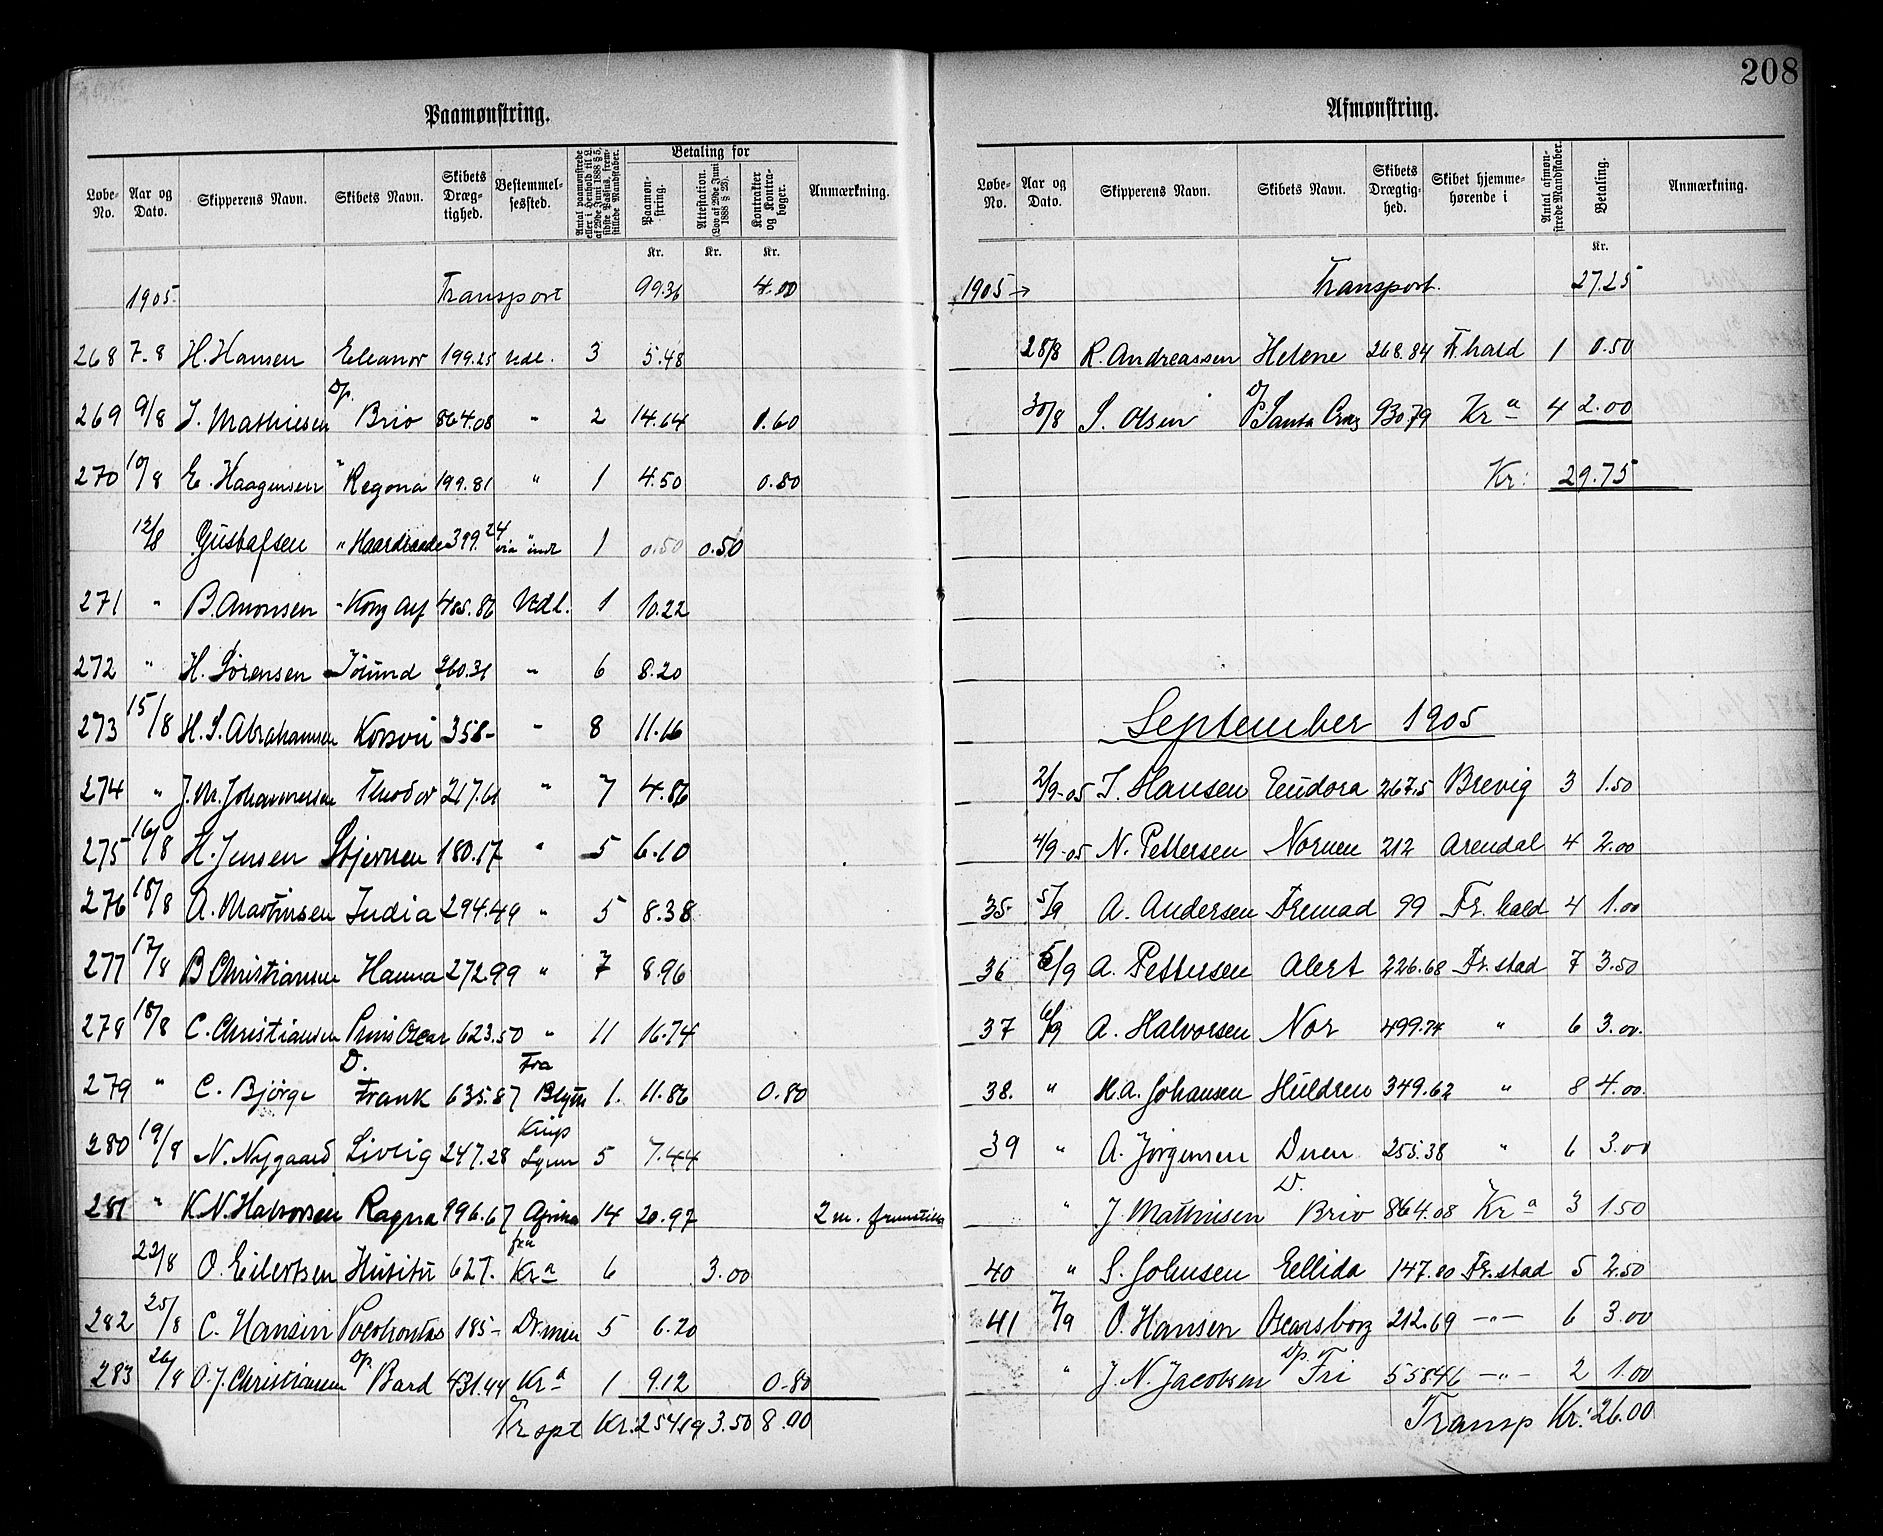 208
Paamønstring.
Løbe-No. Aar og Dato. Skipperens Navn. Skibets Navn. Skibets Dræg-tighed. Bestemmel-sessted. Antal paamønstrede eller i Henhold til L. af 29de Juni 1888 § 5, sidste Passus, frem-stillede Mandskaber. Betaling for Paamøn-string. Attestation. (Lov af 29de Juni 1888 § 28). Kontrakter og Kontra-bøger. Anmærkning.
Kr. Kr. Kr.
1905. Transport 99.36 4.00
268 7-8 H. Hansen Eleanor 199.25 Udl. 3 5.48
269 9/8 J. Mathiesen Dp. Brio 864.08 " 2 14.64 1.60
270 10/8 E. Haagensen " Regona 199.81 " 1 4.50 0.80
12/8 Gustafsen " Haardraade 399.24 via indl 1 0.50 0.50
271 " B. Amonsen " Kong Alf 485.86 Udl. 1 10.22
272 " H. Sørensen Jörund 260.31 " 6 8.20
273 15/8 H. S. Abrahamsen Korsvii 358- " 8 11.16
274 " J. M. Johannessen Theodor 217.61 " 7 4.86
275 16/8 H. Jensen Stjernen 180.17 " 5 6.10
276 16/8 A. Martinsen India 294.49 " 5 8.38
277 17/8 B Christiansen Hanna 272.99 " 7 8.96
278 18/8 C. Christiansen Prins Oscar 623.50 " 11 16.74
279 " C. Bjørge D. Frank 635.87 Fra Blyth 1. 11.86 0.80
280 19/8 N. Nygaard Livlig 247.28 Kings Lynn 5 7.44
281 " K. N. Halvorsen Ragna 996.67 Afrika 14 20.97 2 m. fremstillet
22/8 O. Eilertsen 627. fra Kra 6 3.00
282 25/8 C. Hansen Pocohontas 185- Dr.men 5 6.20
283 26/8 O. J. Christiansen Dp. Bard 431.44 Kra 1 9.12 0.80
Trspt Kr. 254.19 3.50 8.00
Afmønstring.
Løbe-No. Aar og Dato. Skipperens Navn. Skibets Navn. Skibets Drægtig-hed. Skibet hjemme-hørende i Antal afmøn-strede Mandskaber. Betaling. Anmærkning.
Kr.
1905 → Transport. 27.25
28/8 R. Andreassen Helene 268.84 Fr.hald 1 0.50
30/8 S. Olsen D/S Santa Cruz 930.79 Kra 4 2.00
Kr: 29.75
September 1905
2/9-05 T. Hansen Eudora 267.5 Brevig 3 1.50
4/9-05 N. Pettersen Nornen 212 Arendal 4 2.00
35 5/9 A. Andersen Fremad 99 Fr. hald 4 1.00
36 5/9 A. Pettersen Alert 226.68 Fr.stad 7 3.50
37 6/9 A. Halvorsen Nor 499.74 " 6 3.00.
38. " H. A. Johansen Huldren 349.62 " 8 4.00.
39 " A. Jørgensen Duen 255.38 " 6 3.00
" J. Mathisen D. Brio 864.08 Kra 3 1.50
40 " S. Johnsen Eellida 147.80 Fr.stad 5 2.50
41 7/9 O. Hansen Oscarsborg 212.69 -"- 6 3.00
" J. N. Jacobsen Dp. Fri 558.46 -"- 2 1.00
Transp Kr: 26.00